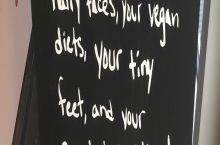 faces, your vegan
diets, your tiny
feet, and your